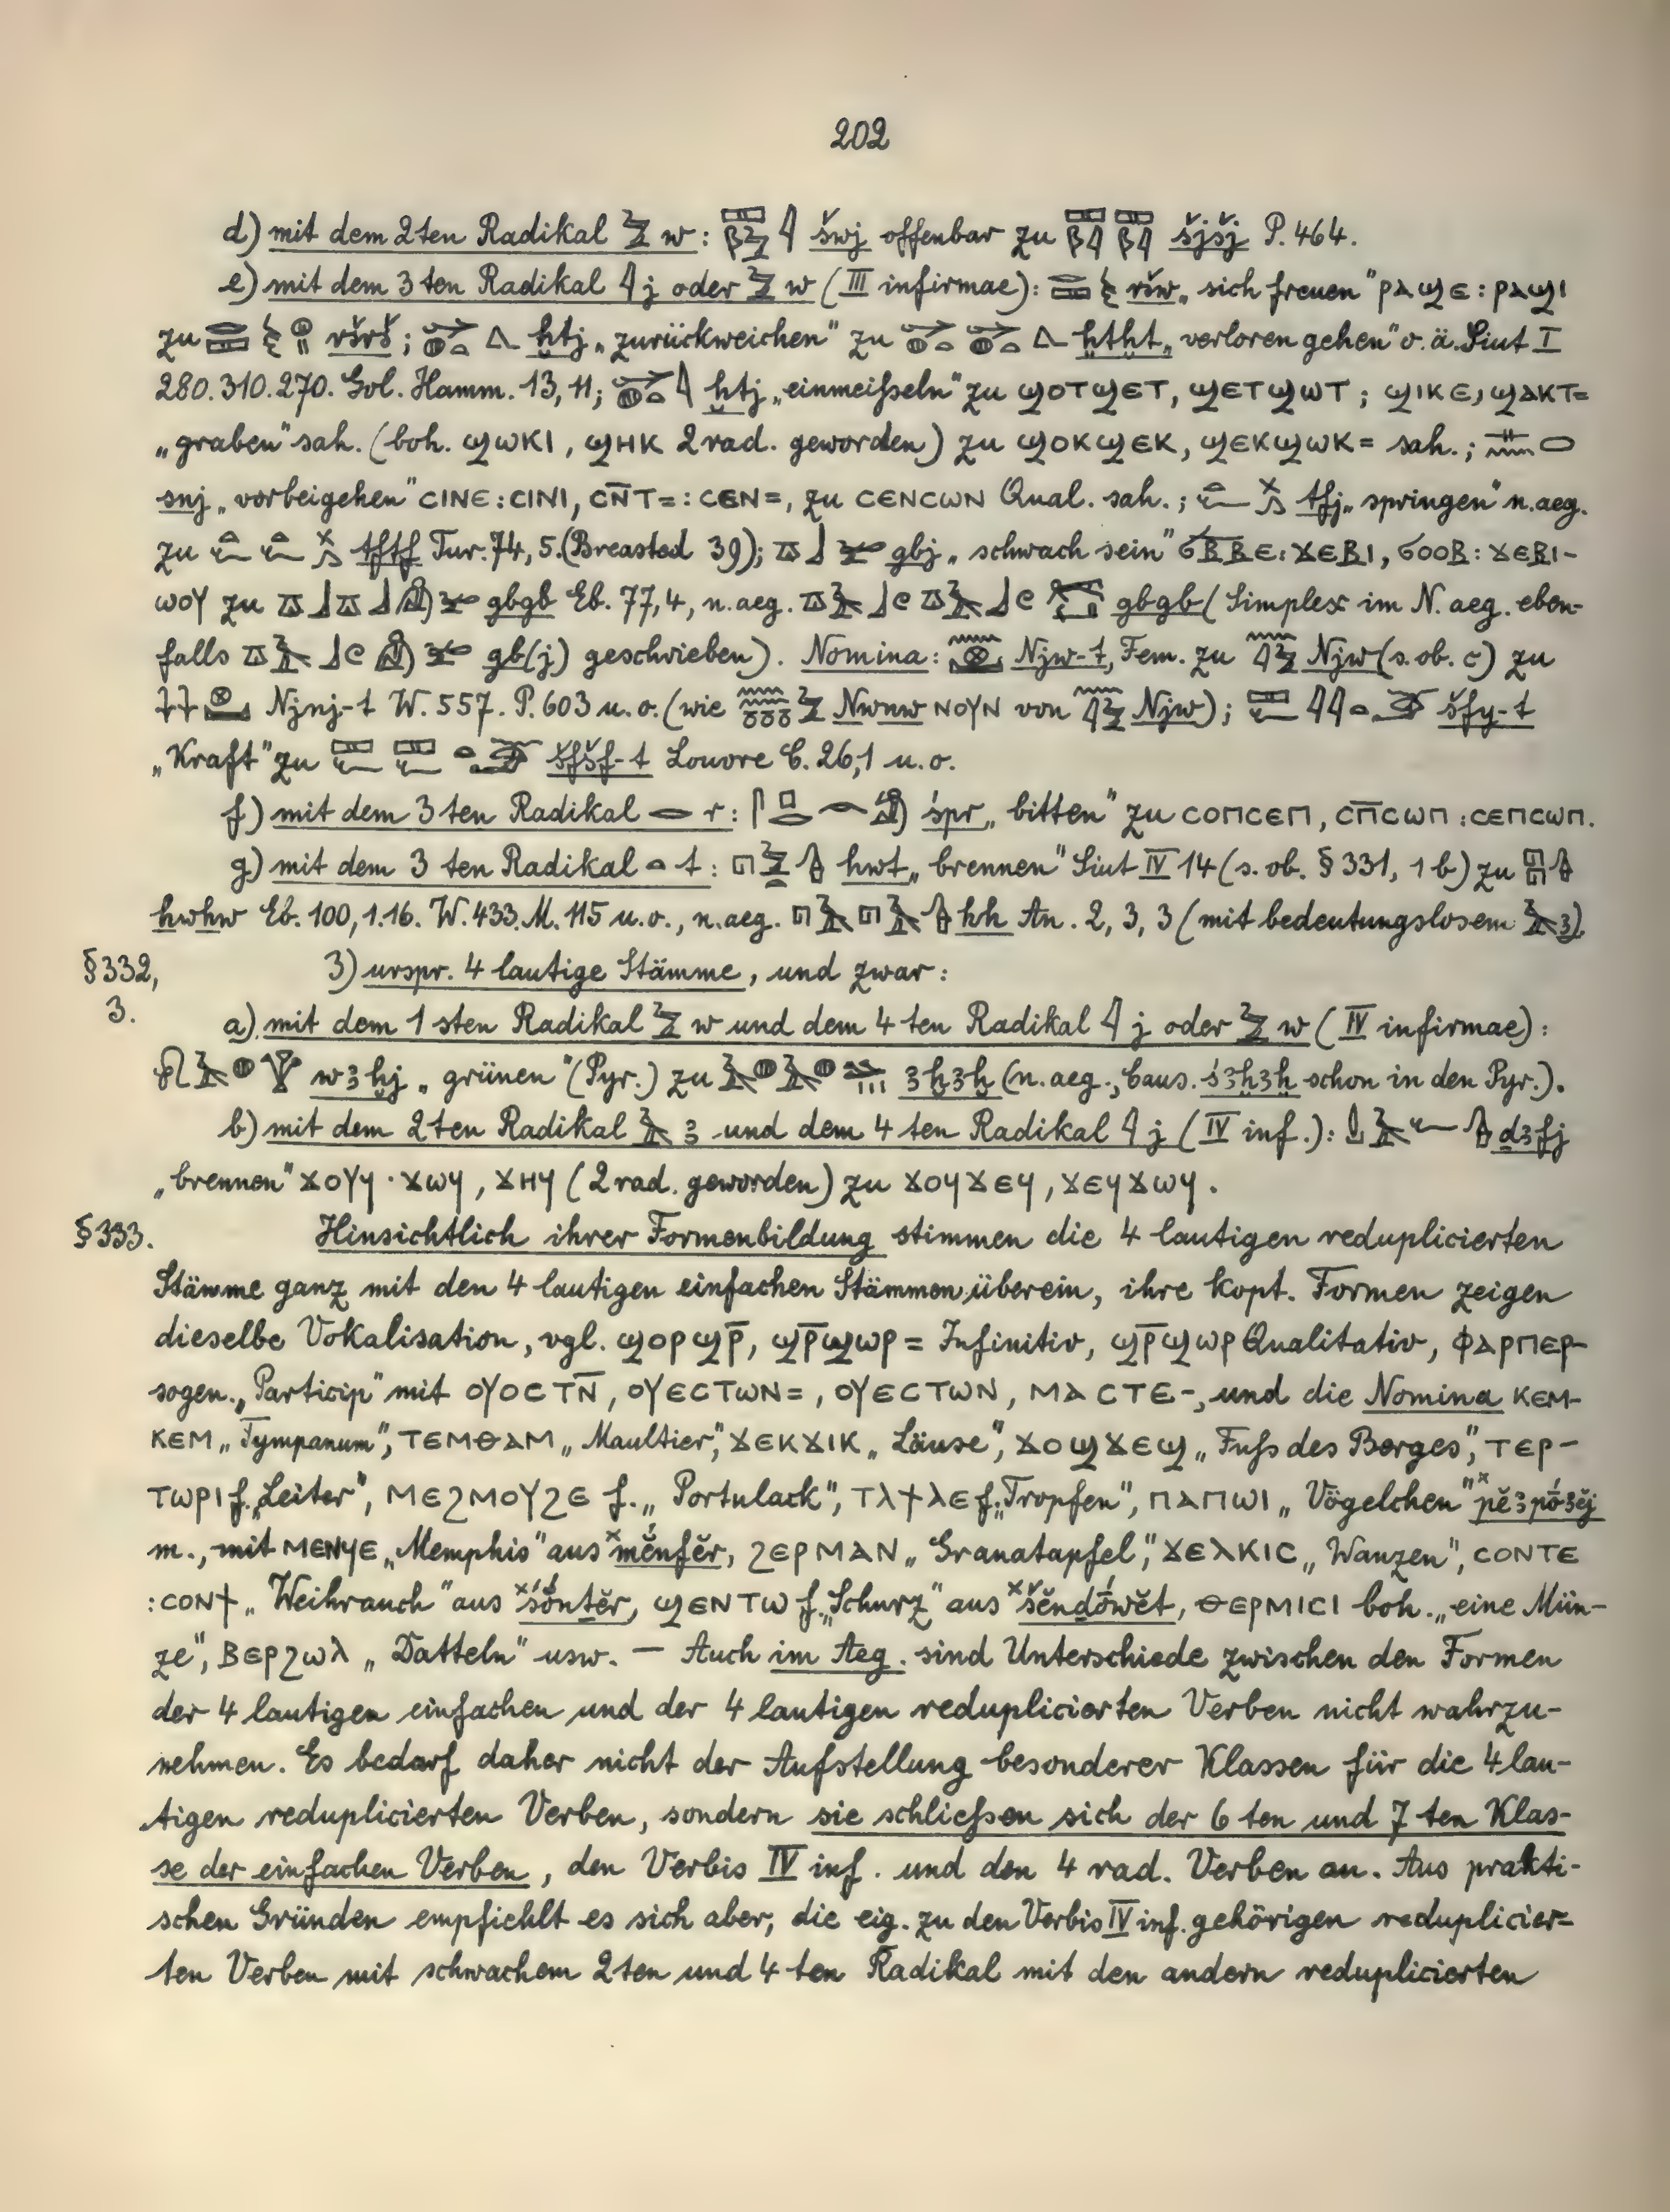 202
d) mit dem 2ten Radikal w: šwj offenbar zu šjšj P. 464.
e) mit dem 3ten Radikal j oder w (III infirmae): ršw „sich freuen“ ⲣⲁϣⲉ : ⲣⲁϣⲓ
zu ršrš; ḫtj „zurückweichen“ zu ḫtḫt „verloren gehen“ o. ä. Siut I
280. 310. 270. Gol. Hamm. 13, 11; ḫtj „einmeißeln“ zu ϣⲟⲧϣⲉⲧ, ϣⲉⲧϣⲱⲧ ; ϣⲓⲕⲉ, ϣⲁⲕⲧ=
„graben“ sah. (boh. ϣⲱⲕⲓ, ϣⲏⲕ 2rad. geworden) zu ϣⲟⲕϣⲉⲕ, ϣⲉⲕϣⲱⲕ= sah.;
snj „vorbeigehen“ ⲥⲓⲛⲉ : ⲥⲓⲛⲓ, ⲥⲛ̄ⲧ= : ⲥⲉⲛ=, zu ⲥⲉⲛⲥⲱⲛ Qual. sah.; tfj „springen“ n. aeg.
zu tftf Tur. 74, 5. (Breasted 39); gbj „schwach sein“ ϭⲃ̄ⲃⲉ : ϫⲉⲃⲓ, ϭⲟⲟⲃ : ϫⲉⲃⲓ-
ⲱⲟⲩ zu gbgb Eb. 77, 4, n. aeg. gbgb (Simplex im N. aeg. eben-
falls gb(j) geschrieben). Nomina: Njw-t, Fem. zu Njw (s. ob. c) zu
Njnj-t W. 557. P. 603 u. o. (wie Nwnw ⲛⲟⲩⲛ von Njw); šfy-t
„Kraft“ zu šfšf-t Louvre C. 26,1 u. o.
f) mit dem 3ten Radikal r: śpr „bitten“ zu ⲥⲟⲡⲥⲉⲡ, ⲥⲡ̄ⲥⲱⲡ : ⲥⲉⲡⲥⲱⲡ.
g) mit dem 3ten Radikal t: hwt „brennen“ Siut IV 14 (s. ob. § 331, 1 b) zu
hwhw Eb. 100, 1.16. W. 433. M. 115 u. o., n. aeg. hh An. 2, 3, 3 (mit bedeutungslosem ꜣ).
§ 332, 3) urspr. 4 lautige Stämme, und zwar:
3. a) mit dem 1sten Radikal w und dem 4ten Radikal j oder w (IV infirmae):
wꜣḫj „grünen“ (Pyr.) zu ꜣḫꜣḫ (n. aeg., Caus. śꜣḫꜣḫ schon in den Pyr.).
b) mit dem 2ten Radikal ꜣ und dem 4ten Radikal j (IV inf.): ḏꜣfj
„brennen“ ϫⲟⲩϥ · ϫⲱϥ, ϫⲏϥ (2rad. geworden) zu ϫⲟϥϫⲉϥ, ϫⲉϥϫⲱϥ.
§ 333. Hinsichtlich ihrer Formenbildung stimmen die 4 lautigen reduplicierten
Stämme ganz mit den 4 lautigen einfachen Stämmen überein, ihre kopt. Formen zeigen
dieselbe Vokalisation, vgl. ϣⲟⲣϣⲣ̄, ϣⲣ̄ϣⲱⲣ= Infinitiv, ϣⲣ̄ϣⲱⲣ Qualitativ, ⲫⲁⲣⲡⲉⲣ-
sogen. „Particip“ mit ⲟⲩⲟⲥⲧⲛ̄, ⲟⲩⲉⲥⲧⲱⲛ=, ⲟⲩⲉⲥⲧⲱⲛ, ⲙⲁⲥⲧⲉ-, und die Nomina ⲕⲉⲙ-
ⲕⲉⲙ „Tympanum“, ⲧⲉⲙⲑⲁⲙ „Maultier“, ϫⲉⲕϫⲓⲕ „Läuse“, ϫⲟϣϫⲉϣ „Fuß des Berges“, ⲧⲉⲣ-
ⲧⲱⲣⲓ f. „Leiter“, ⲙⲉϩⲙⲟⲩϩⲉ f. „Portulack“, ⲧⲗϯⲗⲉ f. „Tropfen“, ⲡⲁⲡⲱⲓ „Vögelchen“ ˣpĕꜣpóꜣĕj
m., mit ⲙⲉⲛϥⲉ „Memphis“ aus ˣmĕnfĕr, ϩⲉⲣⲙⲁⲛ „Granatapfel“, ϫⲉⲗⲕⲓⲥ „Wanzen“, ⲥⲟⲛⲧⲉ
: ⲥⲟⲛϯ „Weihrauch“ aus ˣśónṯĕr, ϣⲉⲛⲧⲱ f. „Schurz“ aus ˣšĕnḏówĕt, ⲑⲉⲣⲙⲓⲥⲓ boh. „eine Mün-
ze“, ⲃⲉⲣϩⲱⲗ „Datteln“ usw. — Auch im Aeg. sind Unterschiede zwischen den Formen
der 4 lautigen einfachen und der 4 lautigen reduplicierten Verben nicht wahrzu-
nehmen. Es bedarf daher nicht der Aufstellung besonderer Klassen für die 4 lau-
tigen reduplicierten Verben, sondern sie schließen sich der 6ten und 7ten Klas-
se der einfachen Verben, den Verbis IV inf. und den 4 rad. Verben an. Aus prakti-
schen Gründen empfiehlt es sich aber, die eig. zu den Verbis IV inf. gehörigen reduplicier=
ten Verben mit schwachem 2ten und 4ten Radikal mit den andern reduplicierten